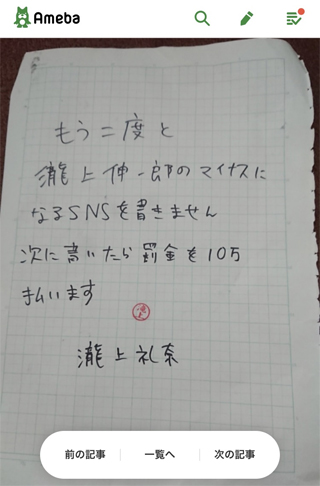 Ameba
もう二度と
瀧上伸一郎のマイナスに
なるSNSを書きません
次に書いたら罰金を10万
払います
瀧上礼奈
前の記事
一覧へ
次の記事